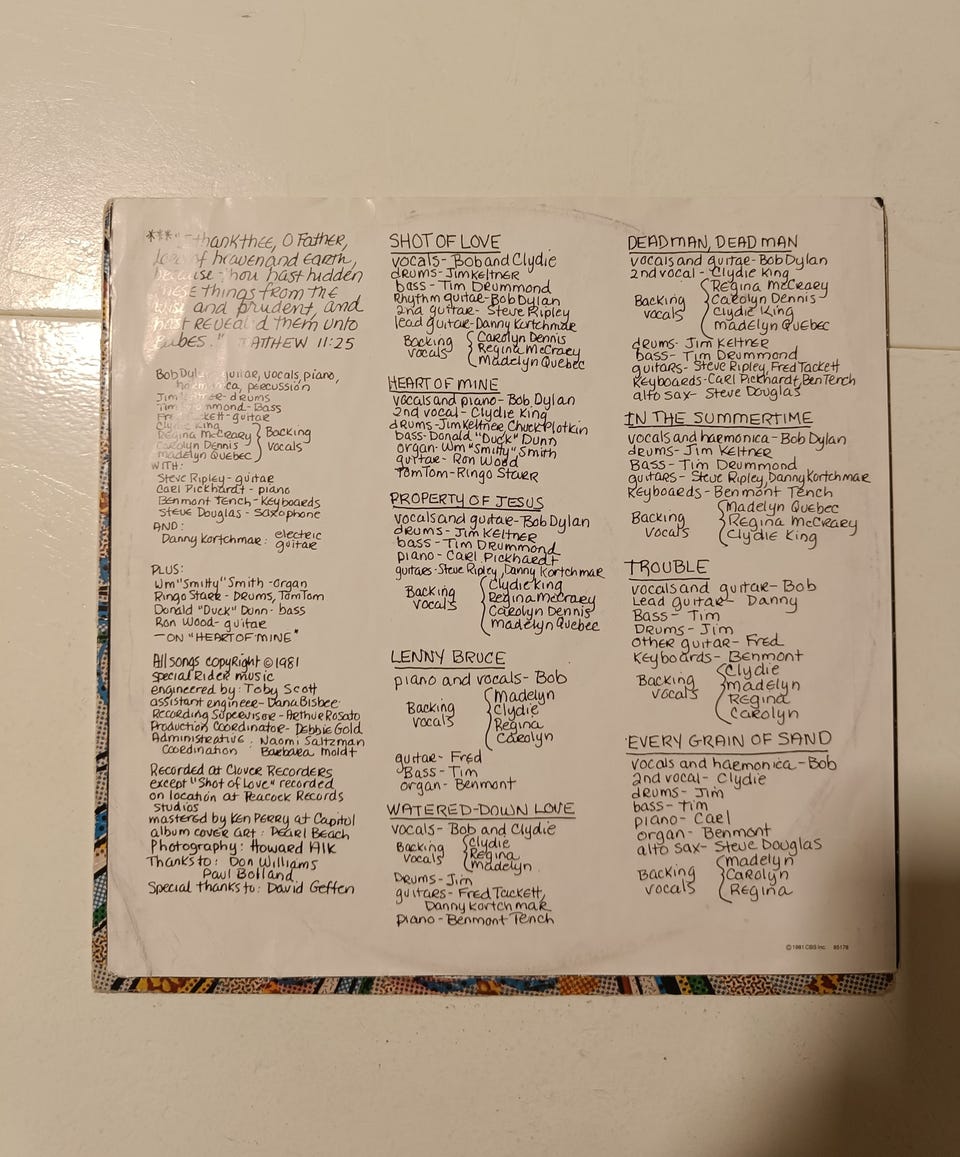 ***"I thank thee, O Father,
lord of heaven and Earth,
because thou hast hidden
these things from the
wise and prudent, and
hast revealed them unto
babes." MATTHEW 11:25
Bob Dylan - guitar, vocals, piano,
harmonica, percussion
Jim Keltner - drums
Tim Drummond - Bass
Fred Tackett - guitar
Clydie King
Regina McCreary
Carolyn Dennis
Madelyn Quebec
Backing
vocals
WITH:
Steve Ripley - guitar
Carl Pickhardt - piano
Benmont Tench - Keyboards
Steve Douglas - Saxophone
AND:
Danny Kortchmar: electric
guitar
PLUS:
Wm "Smitty" Smith - Organ
Ringo Starr - Drums, Tom Tom
Donald "Duck" Dunn - bass
Ron Wood - guitar
— ON "HEART OF MINE"
All songs copyright © 1981
Special Rider music
engineered by: Toby Scott
assistant engineer - Dana Bisbee
Recording Supervisor - Arthur Rosato
Production Coordinator - Debbie Gold
Administrative : Naomi Saltzman
Coordination Barbara Moldt
Recorded at Clover Recorders
except "Shot of Love" recorded
on location at Peacock Records
Studios
mastered by Ken PERRY at Capitol
album cover art : Pearl Beach
Photography : Howard Alk
Thanks to : Don Williams
Paul Bolland
Special thanks to : David Geffen
SHOT OF LOVE
vocals - Bob and Clydie
drums - Jim Keltner
bass - Tim Drummond
Rhythm guitar - Bob Dylan
2nd guitar - Steve Ripley
lead guitar - Danny Kortchmar
Backing
vocals
Carolyn Dennis
Regina McCraey
Madelyn Quebec
HEART OF MINE
vocals and piano - Bob Dylan
2nd vocal - Clydie King
drums - Jim Keltner, Chuck Plotkin
bass - Donald "Duck" Dunn
organ - Wm "Smitty" Smith
guitar - Ron Wood
TomTom - Ringo Starr
PROPERTY OF JESUS
vocals and guitar - Bob Dylan
drums - Jim Keltner
bass - Tim Drummond
piano - Carl Pickhardt
guitars - Steve Ripley, Danny Kortchmar
Backing
vocals
Clydie King
Regina McCraey
Carolyn Dennis
madelyn Quebec
LENNY BRUCE
piano and vocals - Bob
Backing
vocals
Madelyn
Clydie
Regina
Carolyn
guitar - Fred
Bass - Tim
organ - Benmont
WATERED-DOWN LOVE
vocals - Bob and Clydie
Backing
vocals
Clydie
Regina
madelyn
Drums - Jim
guitars - Fred Tackett,
Danny Kortchmar
piano - Benmont Tench
DEAD MAN, DEAD MAN
vocals and guitar - Bob Dylan
2nd vocal - Clydie King
Backing
vocals
Regina McCreary
Carolyn Dennis
Clydie King
madelyn Quebec
drums - Jim Keltner
bass - Tim Drummond
guitars - Steve Ripley, Fred Tackett
Keyboards - Carl Pickhardt, Ben Tench
alto sax - Steve Douglas
IN THE SUMMERTIME
vocals and harmonica - Bob Dylan
drums - Jim Keltner
Bass - Tim Drummond
guitars - Steve Ripley, Danny Kortchmar
Keyboards - Benmont Tench
Backing
vocals
Madelyn Quebec
Regina McCreary
Clydie King
TROUBLE
vocals and guitar - Bob
Lead guitar - Danny
Bass - Tim
Drums - Jim
other guitar - Fred
Keyboards - Benmont
Backing
vocals
Clydie
madelyn
Regina
Carolyn
EVERY GRAIN OF SAND
vocals and harmonica - Bob
2nd vocal - Clydie
drums - Jim
bass - Tim
piano - Carl
organ - Benmont
alto sax - Steve Douglas
Backing
vocals
Madelyn
Carolyn
Regina
© 1981 CBS Inc. 85178